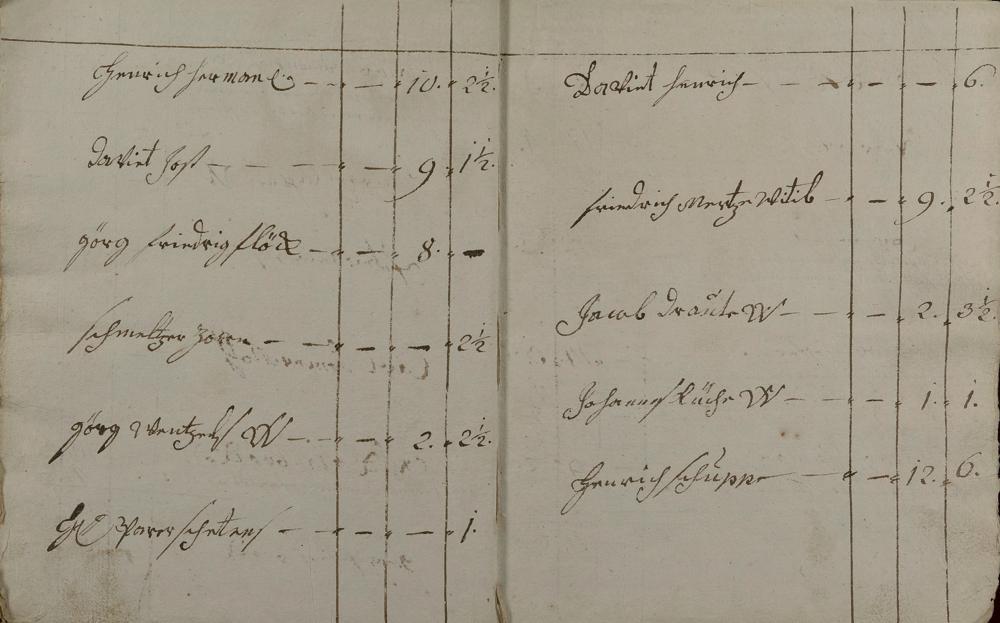 Henrich Herman - " - " 10. " 2½.
Daviet Jost - - - " - " 9. " 1½.
Görg Friedrig Flöck - " - " 8. " -
Schmeltzer - " - " - " 2½
Görg Wentzels W - " - " 2. " 2½.
Parer - " - " - " 1.
Daviet Henrich - - - " - " - " 6.
Friedrich Mertze Witib - " - " 9. " 2½.
Jacob Draute W - " - " 2. " 3½.
Johannes Küche W - " - " 1. " 1.
Henrich Schuppe - " - " 12. " 6.